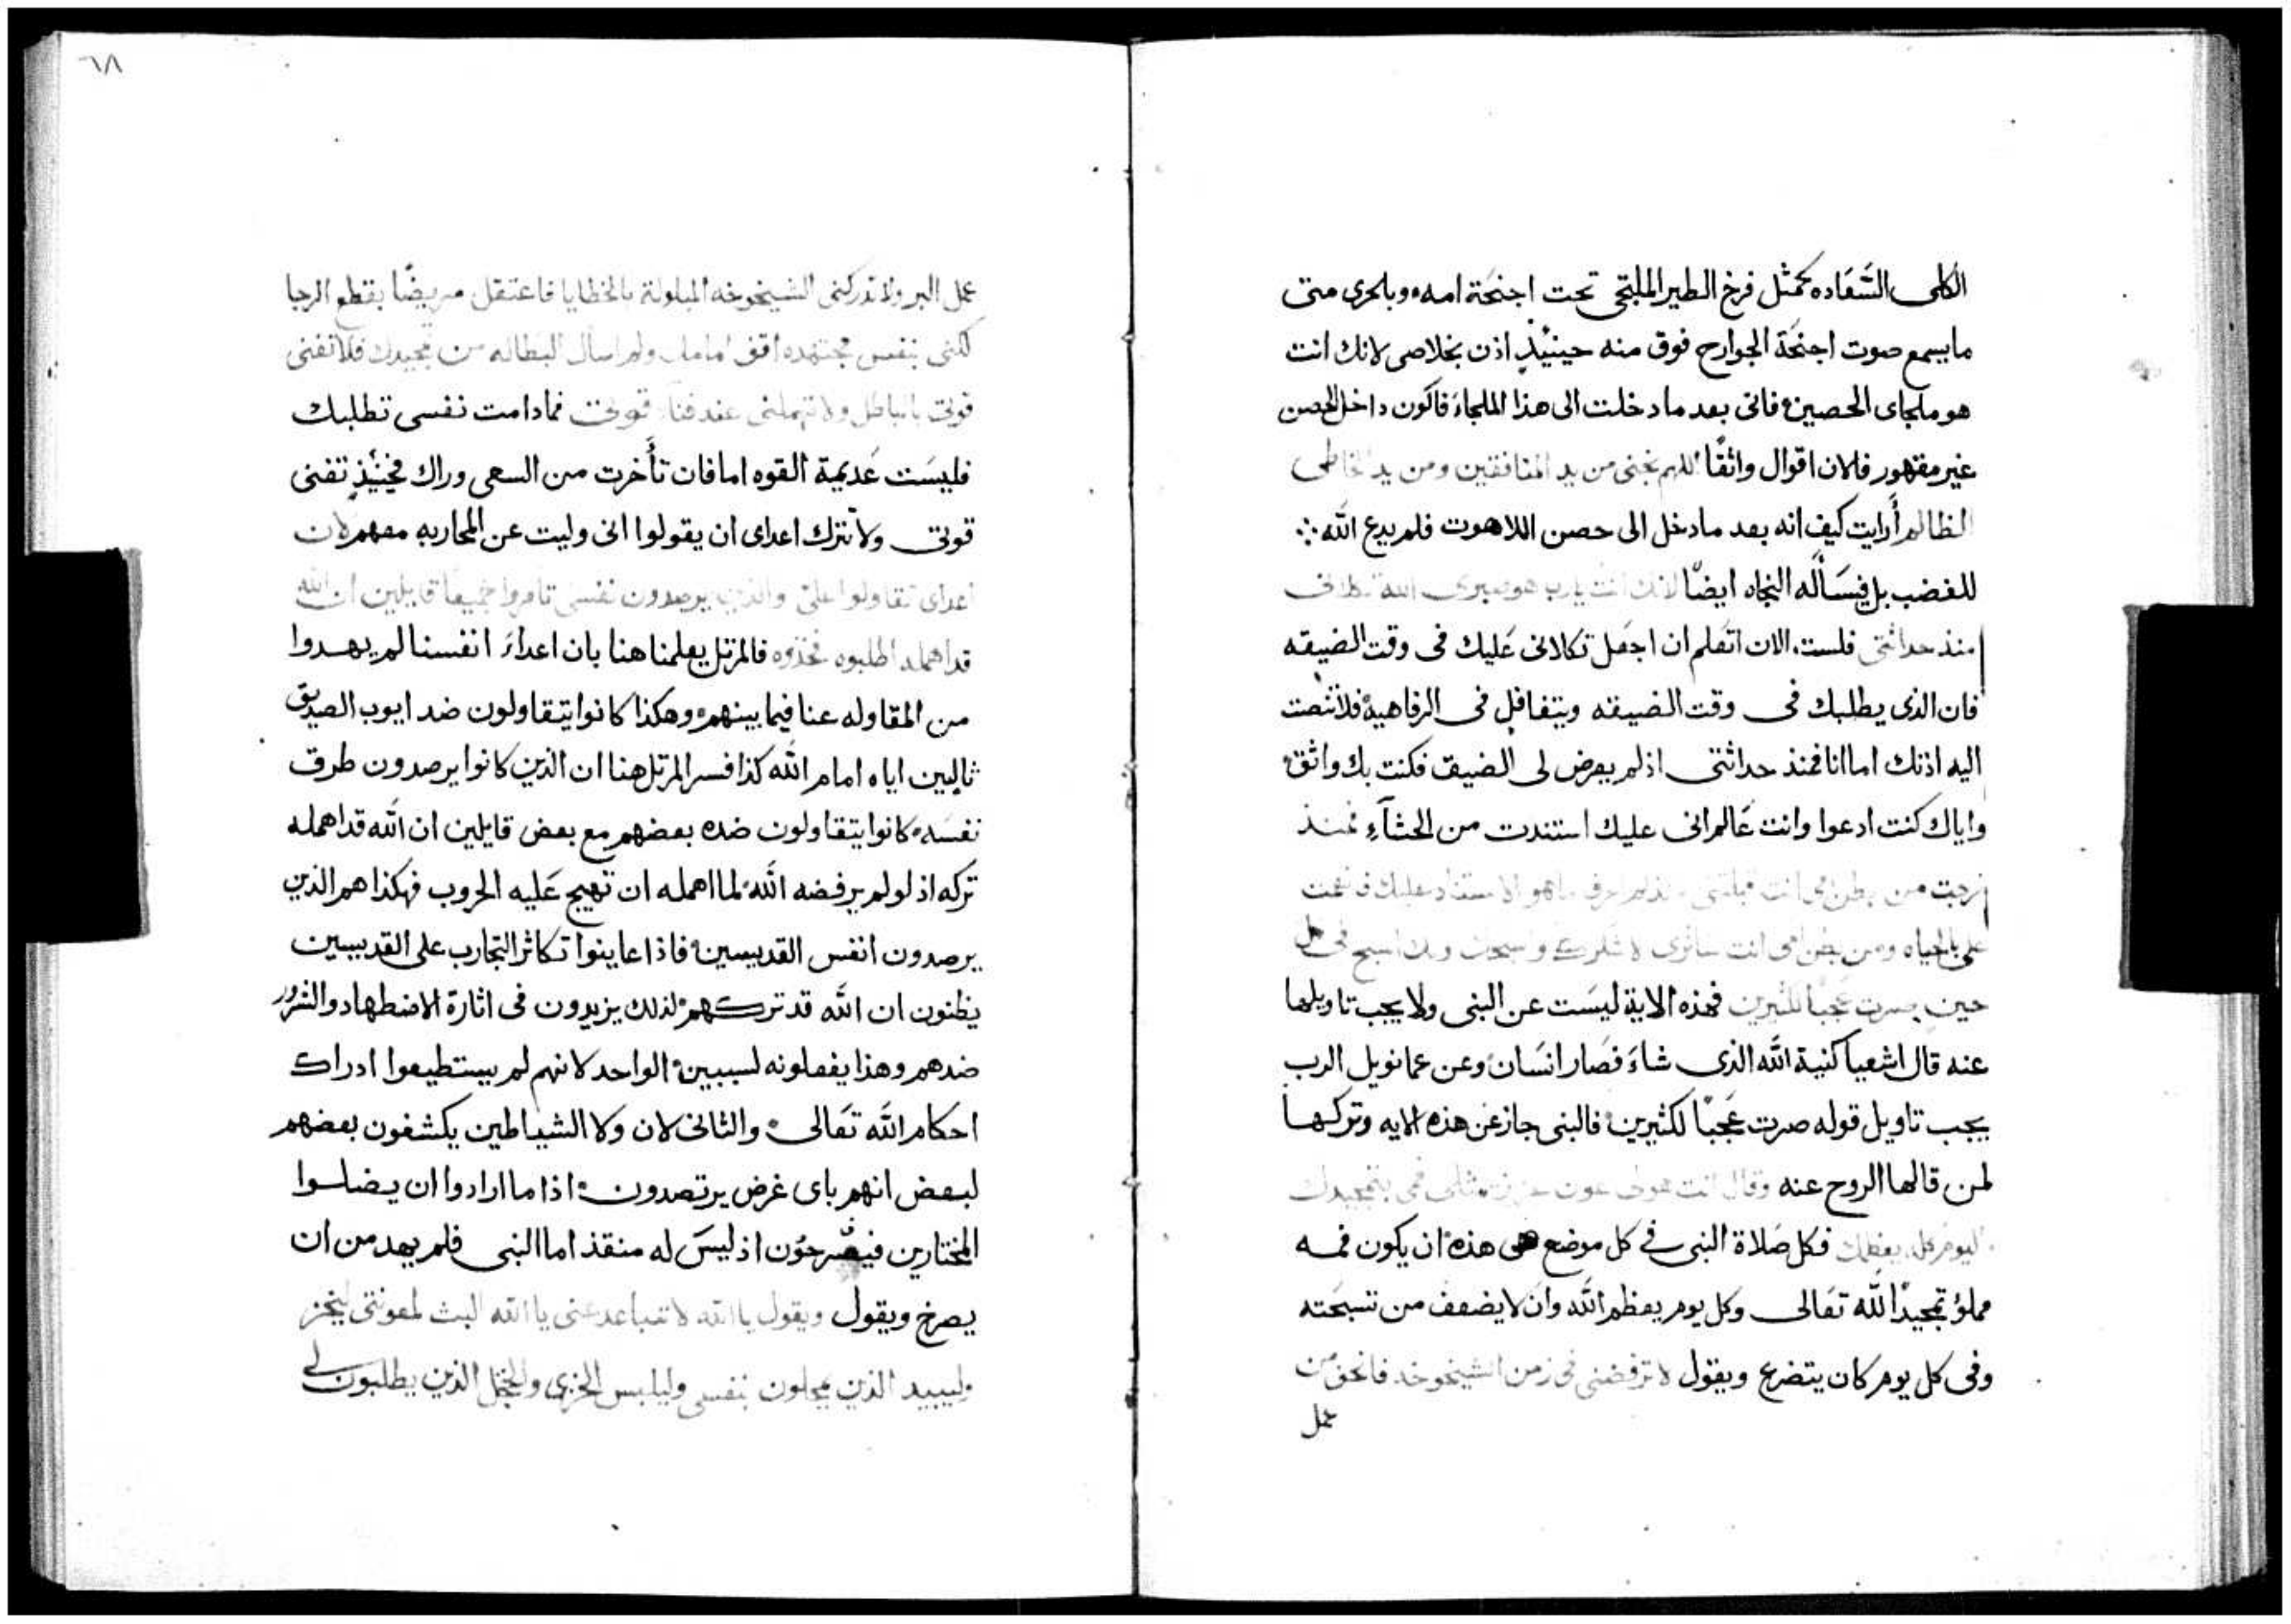 الكلى السَّعَاده كمثل فرخ الطير الملتجى تحت اجنحَة امه، وبلحرى متى
ما يسمع صوت اجنحَة الجوارح فوق منه حينيُذٍ اذن بخلاصى لانك انت
هو ملجاى الحصين، فانى بعد ما دخلت الى هذا الملجاءَ فاكون داخل الحصن
غير مقهور فلان اقوال واثقًا اللهم نجنى من يد المنافقين ومن يد الخاطى
الظالم أرايت كيف انه بعد ما دخل الى حصن اللاهوت فلم يدع الله ∴
للغضب بل فيسَأله النجاه ايضًا لانك انت يارب هو صبرى الله تكلانى
منذ حداثتى فلست، الان اتعَلم ان اجعَل تكلانى عَليك فى وقت الضيقه
فان الذى يطلبك فى وقت الضيقه ويتغافل فى الرفاهية فلا تنصت
اليه اذنك اما انا فمنذ حداثتى اذ لم يعرض لى الضيق فكنت بك واثق،
واياك كنت ادعوا وانت عَالم انى عليك استندت من الحشآءِ فمنذ
خرجت من بطن امى انت قبلتنى اذ لم اعرف ما هو الاستناد عليك فانعمت
على بالحياه ومن بطن امى انت ساترى لاشكرك واسبحك وبك اسبح فى كل
حين صرت عَجبًا لكثيرين فهذه الاية ليسَت عن النبى ولا يجب تاويلها
عنه قال اشعيا كنية الله الذى شاءَ فصَار انسَان، وعن عمانويل الرب
يجب تاويل قوله صرت عَجبًا لكثيرين، فالنبى جاز عَن هذه الايه وتركها
لمن قالها الروح عنه وقال انت هو لى عون عزيز، يمتلى فمى بتمجيدك
اليوم كله يعظمك فكل صَلاة النبى فى كل موضع هى هذه، ان يكون فمه
مملوُ تمجيدًا لله تعَالى وكل يوم يعظم الله وان لا يضعف من تسبحَته
وفى كل يوم كان يتضرع ويقول لا ترفضنى فى زمن الشيخوخه فانحق من
عمل
٦٨
عمل البر ولا تدركنى الشيخوخه المبلولة بالخطايا فاعتقل مريضًا بقطع الرجا
لكنى بنفس مجتهده اقف امامك ولم اسال البطاله من تمجيدك فلا تفنى
قوتى بالباطل ولا تهملنى عند فنآ قوتى فما دامت نفسى تطلبك
فليسَت عَديمة القوه اما فان تأَخرت من السعى وراك فحينُيذٍ تفنى
قوتى ولا تترك اعداى ان يقولوا انى وليت عن المحاربه معهم لان
اعداى تقاولوا علىّ والذين يرصدون نفسى تامروا جميعًا قايلين ان الله
قد اهمله اطلبوه فخذوه فالمرتل يعلمنا هنا بان اعداءَ انفسنا لم يهدوا
من المقاوله عنا فيما بينهم، وهكذا كانوا يتقاولون ضد ايوب الصديق
ثالبين اياه امام الله كذا فسر المرتل هنا ان الذين كانوا يرصدون طرق
نفسَه، كانوا يتقاولون ضده بعضهم مع بعض قايلين ان الله قد اهمله
تركه اذ لو لم يرفضه الله، لما اهمله ان تهيج عَليه الحروب فهكذا هم الذين
يرصدون انفس القديسين، فاذا عاينوا تكاثر التجارب على القديسين
يظنون ان الله قد تركهم، لذلك يزيدون فى اثارة الاضطهاد والشرور
ضدهم وهذا يفعلونه لسببين، الواحد لانهم لم يستطيعوا ادراك
احكام الله تعَالى، والثانى لان ولا الشياطين يكشفون بعضهم
لبعض انهم باى غرض يرتصدون، اذا ما ارادوا ان يضلوا
المختارين فيصّرحُون اذ ليسَ له منقذ اما النبى فلم يهد من ان
يصرخ ويقول ويقول يا الله لا تتباعد عنى يا الله البث لمعونتى ليخز
وليبيد الذين يمحلون بنفسى وليلبس الخزى والخجل الذين يطلبون لى